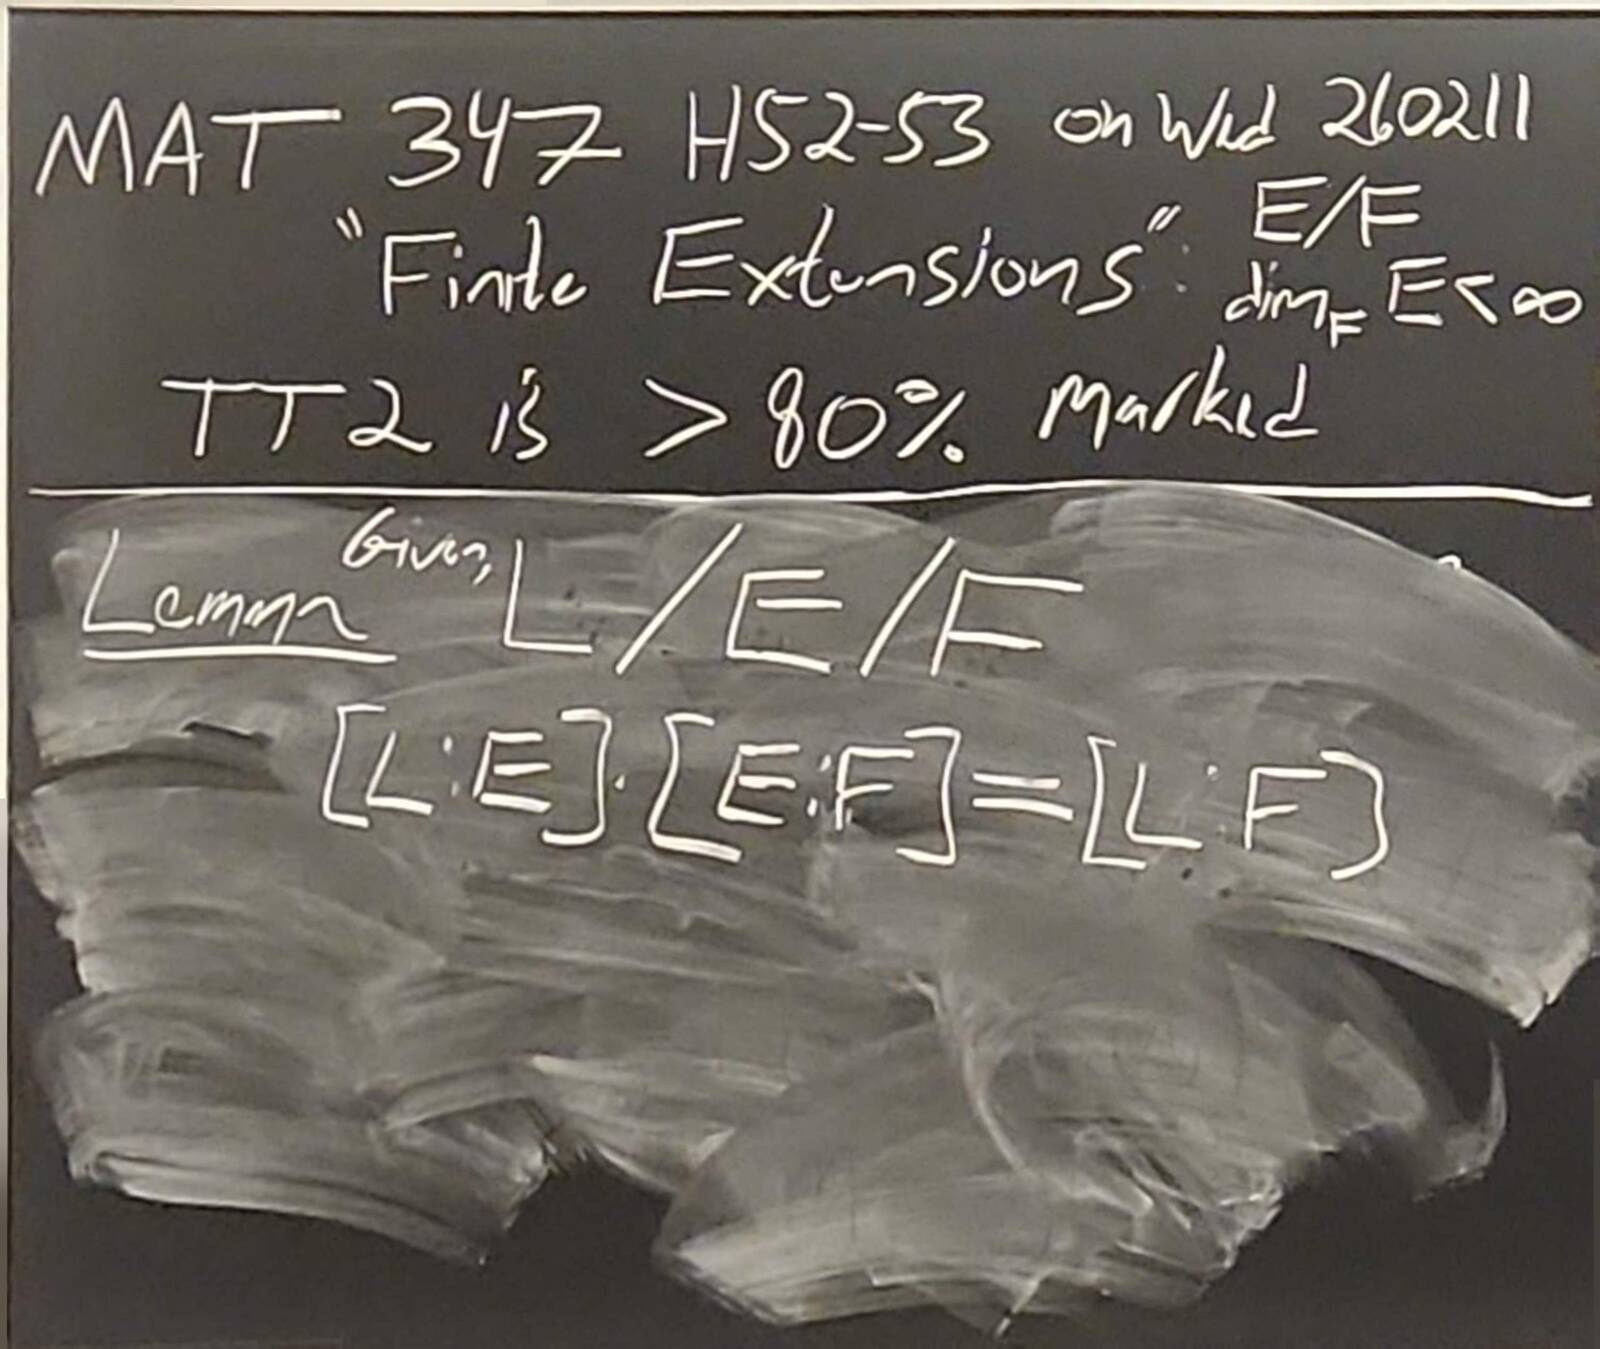 MAT 347 H52-53 on Wed 260211
"Finite Extensions": E/F
dim_F E < ∞
TT2 is > 80% marked
Lemma Given, L/E/F
[L:E]·[E:F]=[L:F]